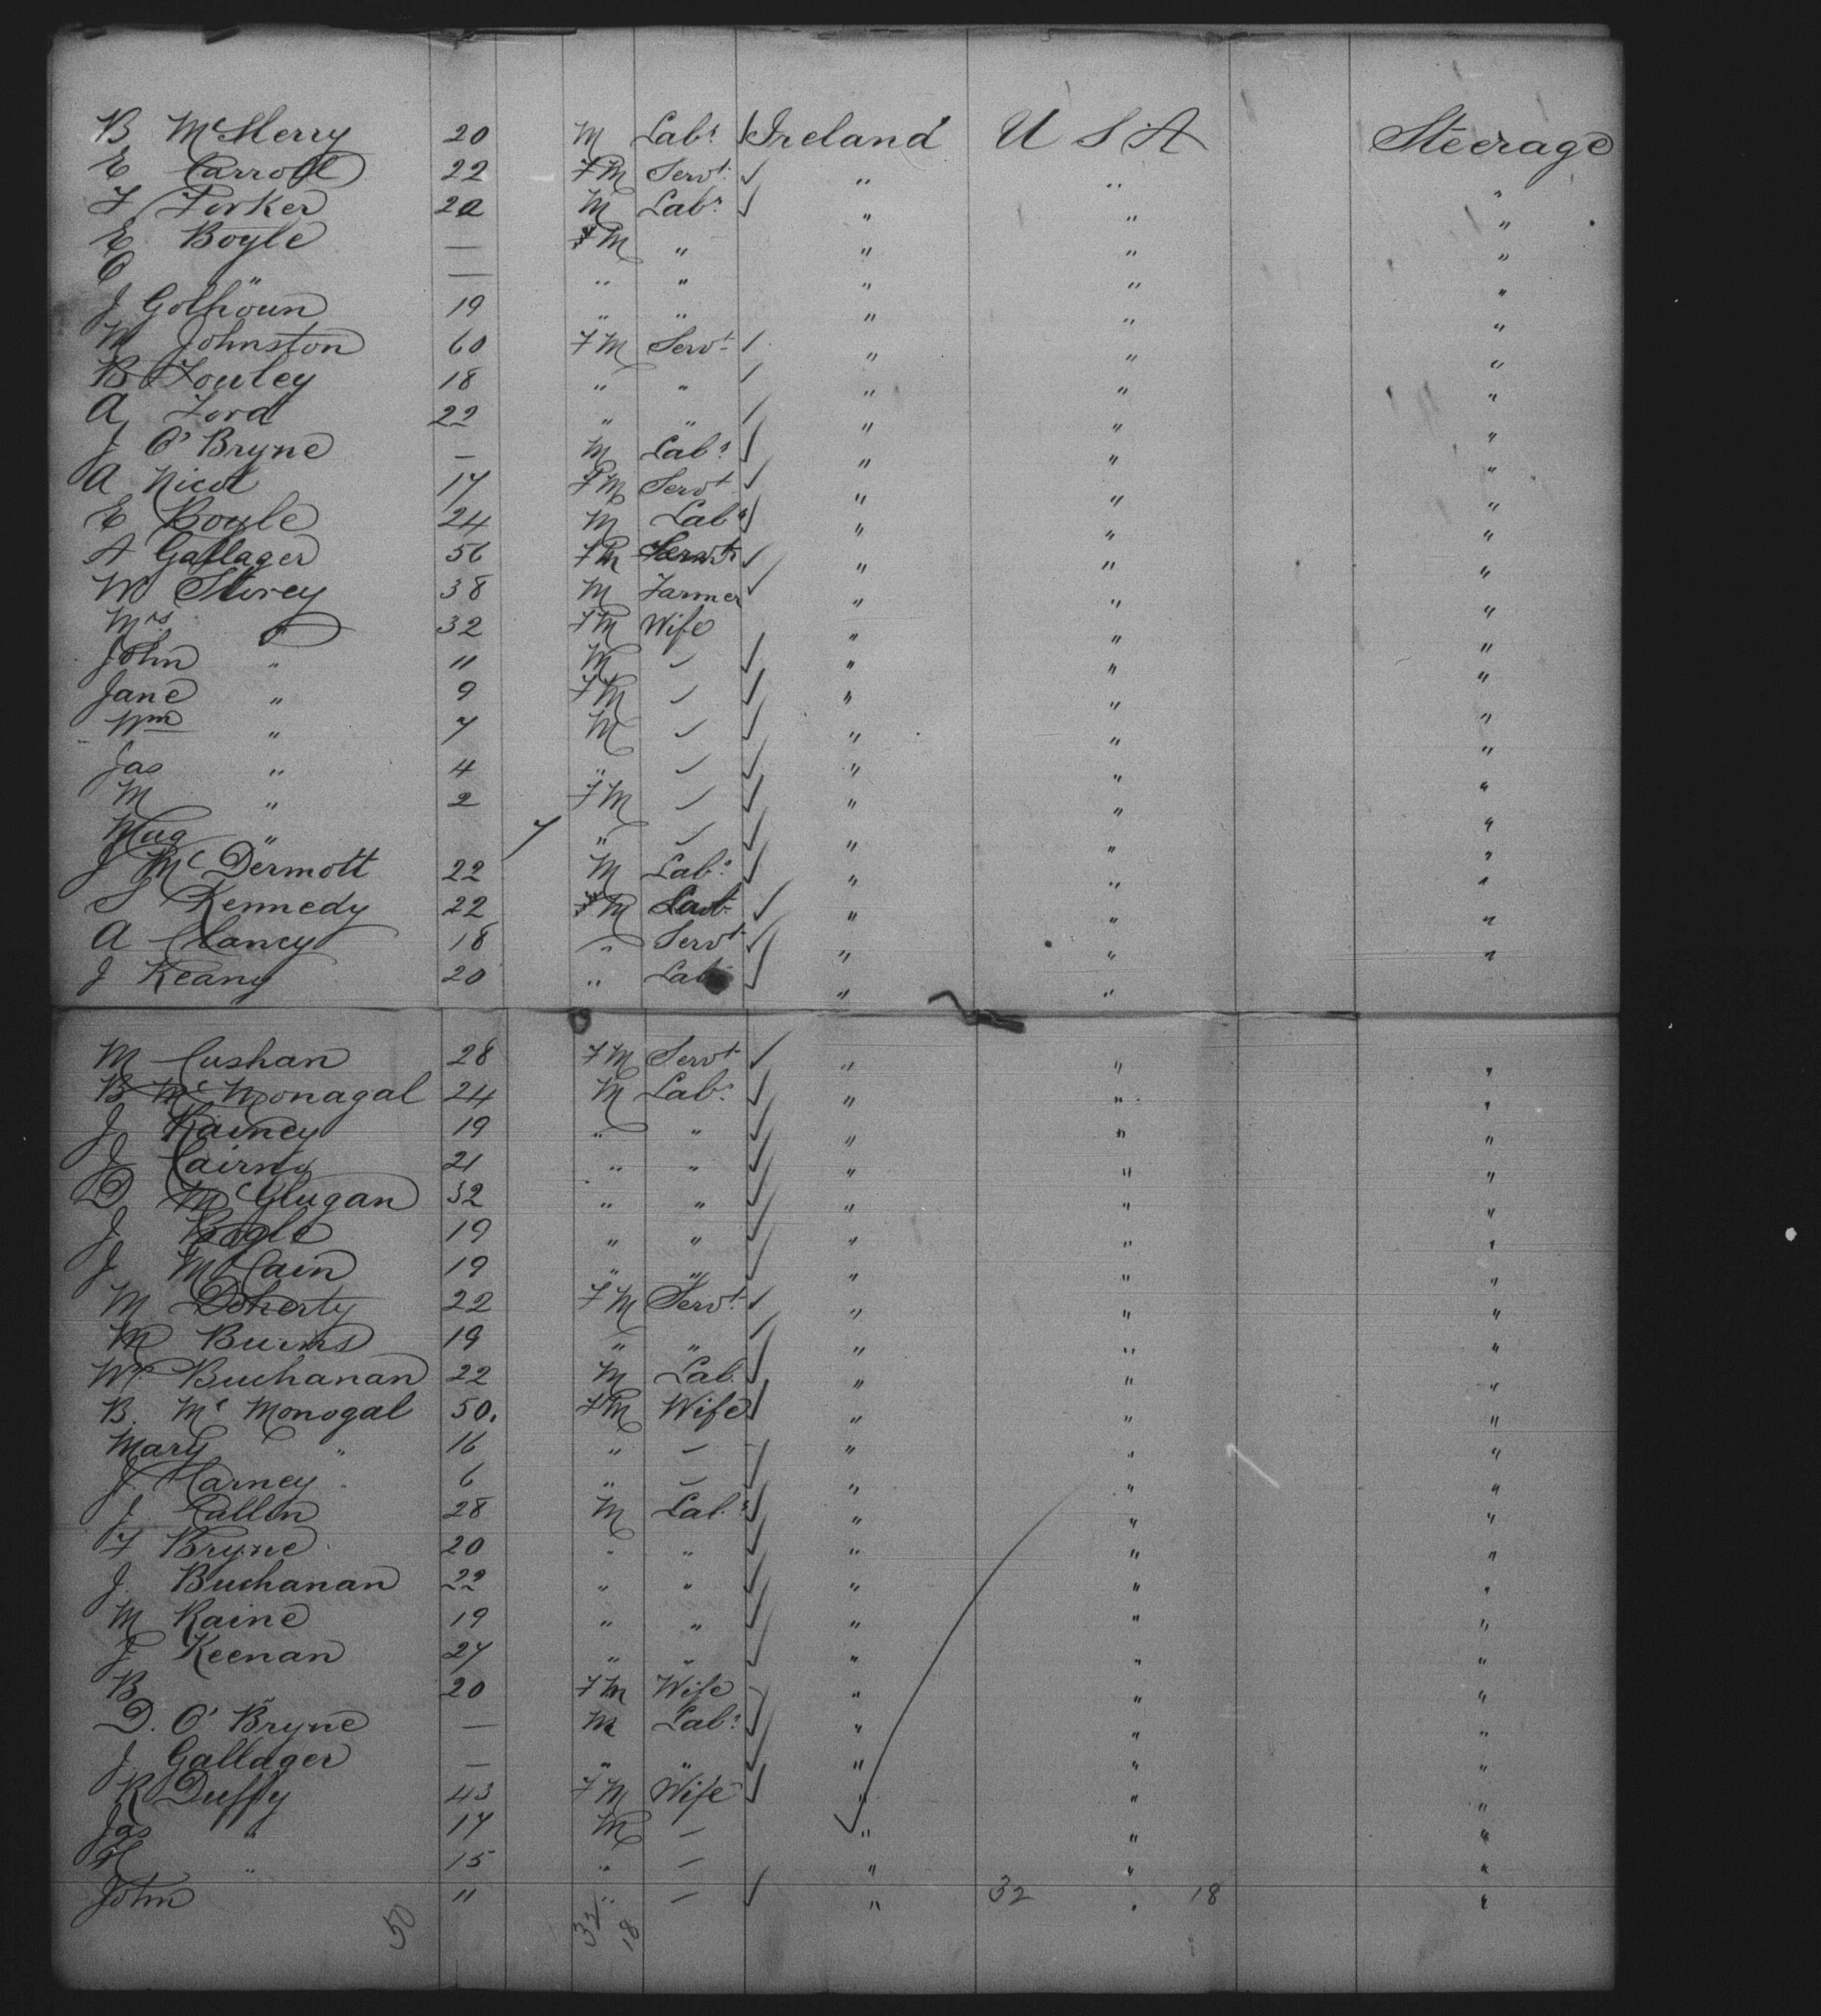 B McSherry 20 M Labr Ireland U S A Steerage
E Carroll 22 FM Servt " " "
F Forker 20 M Labr " " "
E Boyle — FM " " " "
C " — " " " " "
J Golhoun 19 " " " " "
M Johnston 60 FM Servt " " "
B Fowley 18 " " " " "
A Ford 22 " " " " "
J O'Bryne — M Labr " " "
A Nicol 17 FM Servt " " "
E Boyle 24 M Labr " " "
A Gallager 56 FM Servt " " "
W Storey 38 M Farmer " " "
Mrs " 32 FM Wife " " "
John " 11 M — " " "
Jane " 9 FM — " " "
Wm " 7 M — " " "
Jas " 4 " — " " "
M " 2 FM — " " "
Mag " 7 " — " " "
J McDermott 22 M Labr " " "
S Kennedy 22 FM " " "
A Clancy 18 " Servt " " "
J Keany 20 " Lab " "
M Cushan 28 FM Servt " " "
B McMonagal 24 M Labr " " "
J Rainey 19 " " " " "
J Cairny 21 " " " " "
D McGlugan 32 " " " " "
J Bogle 19 " " " " "
J McCain 19 " " " " "
M Doherty 22 FM Servt " " "
M Burns 19 " " " " "
Wm Buchanan 22 M Lab. " " "
B. Mc Monogal 50. FM Wife " " "
Mary " 16 " — " " "
J Harney 6 " — " " "
J Callen 28 M Labr " " "
F Bryne 20 " " " " "
J. Buchanan 22 " " " " "
M Raine 19 " " " " "
J Keenan 27 " " " " "
B " 20 FM Wife " " "
D. O'Bryne — M Labr " " "
J Gallager — " " " " "
R Duffy 43 FM Wife " " "
Jas " 17 M — " " "
H " 15 " — " " "
John 11 " — " 32 " 18 "
50 32 18